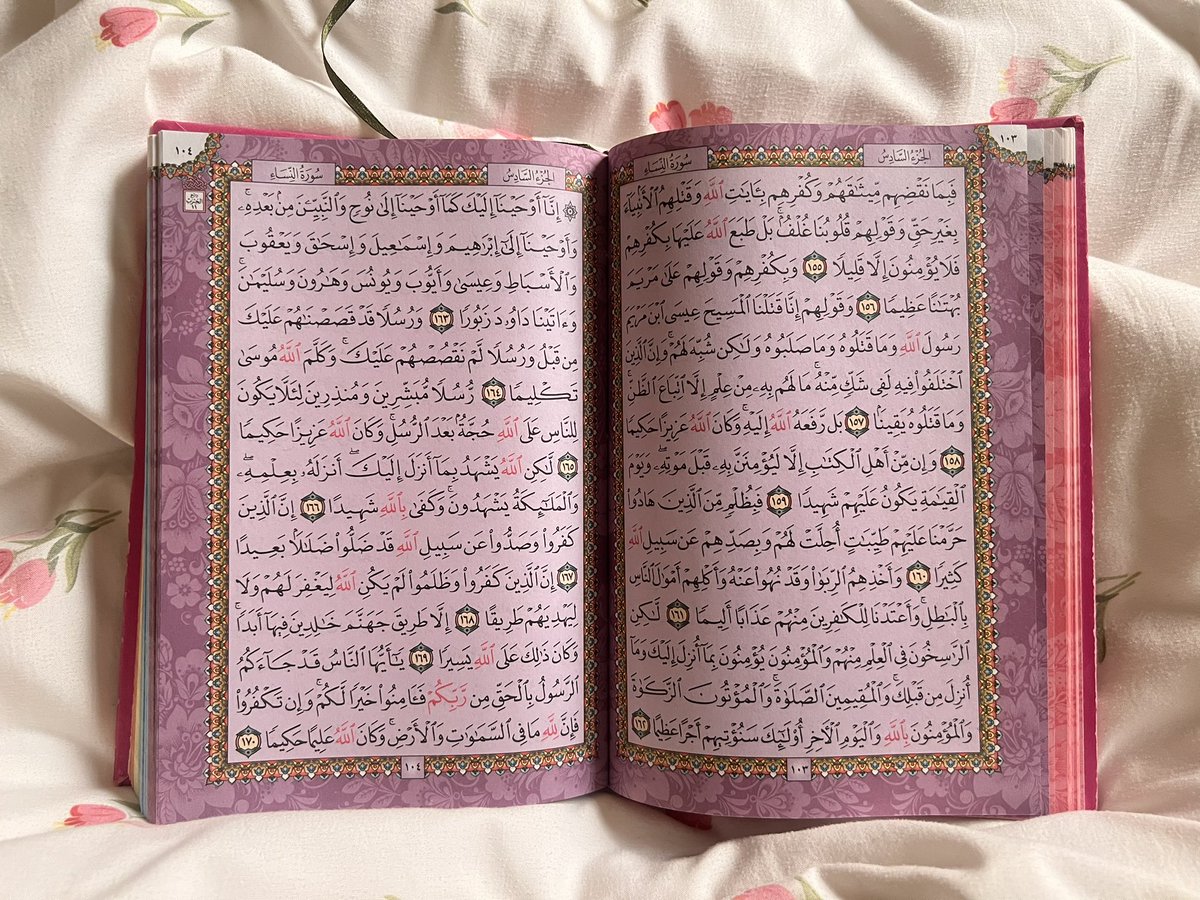 ١٠٣
الجُزءُ السَّادِسُ
سُورَةُ النِّسَاءِ
فَبِمَا نَقْضِهِم مِّيثَٰقَهُمْ وَكُفْرِهِم بِـَٔايَٰتِ ٱللَّهِ وَقَتْلِهِمُ ٱلْأَنۢبِيَآءَ
بِغَيْرِ حَقٍّ وَقَوْلِهِمْ قُلُوبُنَا غُلْفٌۢ ۚ بَلْ طَبَعَ ٱللَّهُ عَلَيْهَا بِكُفْرِهِمْ
فَلَا يُؤْمِنُونَ إِلَّا قَلِيلًا ١٥٥ وَبِكُفْرِهِمْ وَقَوْلِهِمْ عَلَىٰ مَرْيَمَ
بُهْتَٰنًا عَظِيمًا ١٥٦ وَقَوْلِهِمْ إِنَّا قَتَلْنَا ٱلْمَسِيحَ عِيسَى ٱبْنَ مَرْيَمَ
رَسُولَ ٱللَّهِ وَمَا قَتَلُوهُ وَمَا صَلَبُوهُ وَلَٰكِن شُبِّهَ لَهُمْ ۚ وَإِنَّ ٱلَّذِينَ
ٱخْتَلَفُوا۟ فِيهِ لَفِى شَكٍّ مِّنْهُ ۚ مَا لَهُم بِهِۦ مِنْ عِلْمٍ إِلَّا ٱتِّبَاعَ ٱلظَّنِّ ۚ
وَمَا قَتَلُوهُ يَقِينًۢا ١٥٧ بَل رَّفَعَهُ ٱللَّهُ إِلَيْهِ ۚ وَكَانَ ٱللَّهُ عَزِيزًا حَكِيمًا
١٥٨ وَإِن مِّنْ أَهْلِ ٱلْكِتَٰبِ إِلَّا لَيُؤْمِنَنَّ بِهِۦ قَبْلَ مَوْتِهِۦ ۖ وَيَوْمَ
ٱلْقِيَٰمَةِ يَكُونُ عَلَيْهِمْ شَهِيدًا ١٥٩ فَبِظُلْمٍ مِّنَ ٱلَّذِينَ هَادُوا۟
حَرَّمْنَا عَلَيْهِمْ طَيِّبَٰتٍ أُحِلَّتْ لَهُمْ وَبِصَدِّهِمْ عَن سَبِيلِ ٱللَّهِ
كَثِيرًا ١٦٠ وَأَخْذِهِمُ ٱلرِّبَوٰا۟ وَقَدْ نُهُوا۟ عَنْهُ وَأَكْلِهِمْ أَمْوَٰلَ ٱلنَّاسِ
بِٱلْبَٰطِلِ ۚ وَأَعْتَدْنَا لِلْكَٰفِرِينَ مِنْهُمْ عَذَابًا أَلِيمًا ١٦١ لَّٰكِنِ
ٱلرَّٰسِخُونَ فِى ٱلْعِلْمِ مِنْهُمْ وَٱلْمُؤْمِنُونَ يُؤْمِنُونَ بِمَآ أُنزِلَ إِلَيْكَ وَمَآ
أُنزِلَ مِن قَبْلِكَ ۚ وَٱلْمُقِيمِينَ ٱلصَّلَوٰةَ ۚ وَٱلْمُؤْتُونَ ٱلزَّكَوٰةَ
وَٱلْمُؤْمِنُونَ بِٱللَّهِ وَٱلْيَوْمِ ٱلْءَاخِرِ أُو۟لَٰٓئِكَ سَنُؤْتِيهِمْ أَجْرًا عَظِيمًا ١٦٢
١٠٣
١٠٤
الجُزءُ السَّادِسُ
سُورَةُ النِّسَاءِ
۞ إِنَّآ أَوْحَيْنَآ إِلَيْكَ كَمَآ أَوْحَيْنَآ إِلَىٰ نُوحٍ وَٱلنَّبِيِّـۧنَ مِنۢ بَعْدِهِۦ ۚ
وَأَوْحَيْنَآ إِلَىٰٓ إِبْرَٰهِيمَ وَإِسْمَٰعِيلَ وَإِسْحَٰقَ وَيَعْقُوبَ
وَٱلْأَسْبَاطِ وَعِيسَىٰ وَأَيُّوبَ وَيُونُسَ وَهَٰرُونَ وَسُلَيْمَٰنَ ۚ
وَءَاتَيْنَا دَاوُۥدَ زَبُورًا ١٦٣ وَرُسُلًا قَدْ قَصَصْنَٰهُمْ عَلَيْكَ
مِن قَبْلُ وَرُسُلًا لَّمْ نَقْصُصْهُمْ عَلَيْكَ ۚ وَكَلَّمَ ٱللَّهُ مُوسَىٰ
تَكْلِيمًا ١٦٤ رُّسُلًا مُّبَشِّرِينَ وَمُنذِرِينَ لِئَلَّا يَكُونَ
لِلنَّاسِ عَلَى ٱللَّهِ حُجَّةٌۢ بَعْدَ ٱلرُّسُلِ ۚ وَكَانَ ٱللَّهُ عَزِيزًا حَكِيمًا
١٦٥ لَّٰكِنِ ٱللَّهُ يَشْهَدُ بِمَآ أَنزَلَ إِلَيْكَ ۖ أَنزَلَهُۥ بِعِلْمِهِۦ ۖ
وَٱلْمَلَٰٓئِكَةُ يَشْهَدُونَ ۚ وَكَفَىٰ بِٱللَّهِ شَهِيدًا ١٦٦ إِنَّ ٱلَّذِينَ
كَفَرُوا۟ وَصَدُّوا۟ عَن سَبِيلِ ٱللَّهِ قَدْ ضَلُّوا۟ ضَلَٰلًۢا بَعِيدًا
١٦٧ إِنَّ ٱلَّذِينَ كَفَرُوا۟ وَظَلَمُوا۟ لَمْ يَكُنِ ٱللَّهُ لِيَغْفِرَ لَهُمْ وَلَا
لِيَهْدِيَهُمْ طَرِيقًا ١٦٨ إِلَّا طَرِيقَ جَهَنَّمَ خَٰلِدِينَ فِيهَآ أَبَدًا ۚ
وَكَانَ ذَٰلِكَ عَلَى ٱللَّهِ يَسِيرًا ١٦٩ يَٰٓأَيُّهَا ٱلنَّاسُ قَدْ جَآءَكُمُ
ٱلرَّسُولُ بِٱلْحَقِّ مِن رَّبِّكُمْ فَـَٔامِنُوا۟ خَيْرًا لَّكُمْ ۚ وَإِن تَكْفُرُوا۟
فَإِنَّ لِلَّهِ مَا فِى ٱلسَّمَٰوَٰتِ وَٱلْأَرْضِ ۚ وَكَانَ ٱللَّهُ عَلِيمًا حَكِيمًا ١٧٠
١٠٤